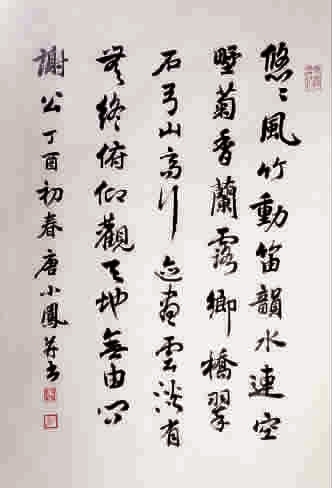 悠〻風竹動笛韻水連空
野菊香蘭露鄉橋翠
石弓山高行迹盡雲淡有
無終俯仰觀天地無由問
謝公丁酉初春唐小鳳并書